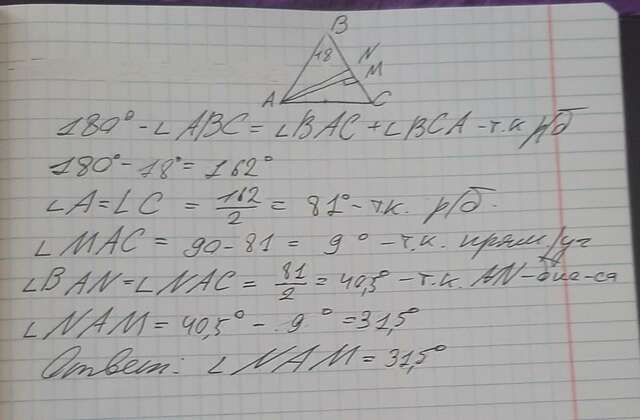 B
18
N
M
A
C
180° - ∠ABC = ∠BAC + ∠BCA - т.к р/б
180° - 18° = 162°
∠A = ∠C = 162/2 = 81° - т.к. р/б.
∠MAC = 90 - 81 = 9° - т.к. прям/уг
∠BAN = ∠NAC = 81/2 = 40,5° - т.к. AN - бис-са
∠NAM = 40,5° - 9° = 31,5°
Ответ: ∠NAM = 31,5°